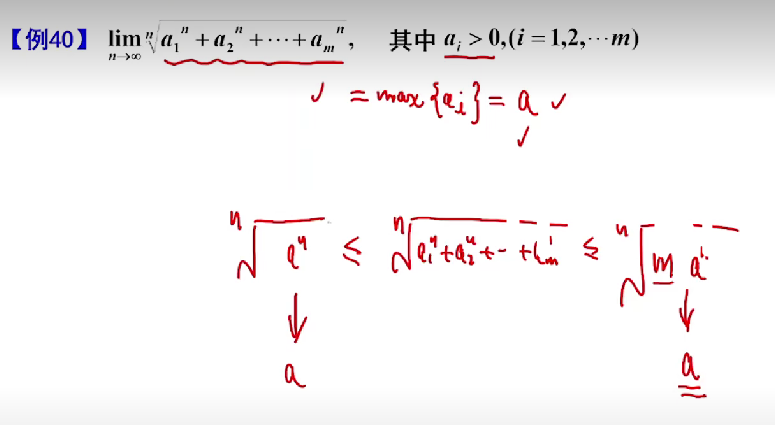 【例40】 lim_{n→∞} ⁿ√(a₁ⁿ + a₂ⁿ + ··· + aₘⁿ), 其中 aᵢ > 0,(i = 1,2,···m)
✓ = max{aᵢ} = a ✓
✓
ⁿ√(aⁿ) ≤ ⁿ√(a₁ⁿ + a₂ⁿ + ·· + aₘⁿ) ≤ ⁿ√(m aⁿ)
↓ ↓
a a